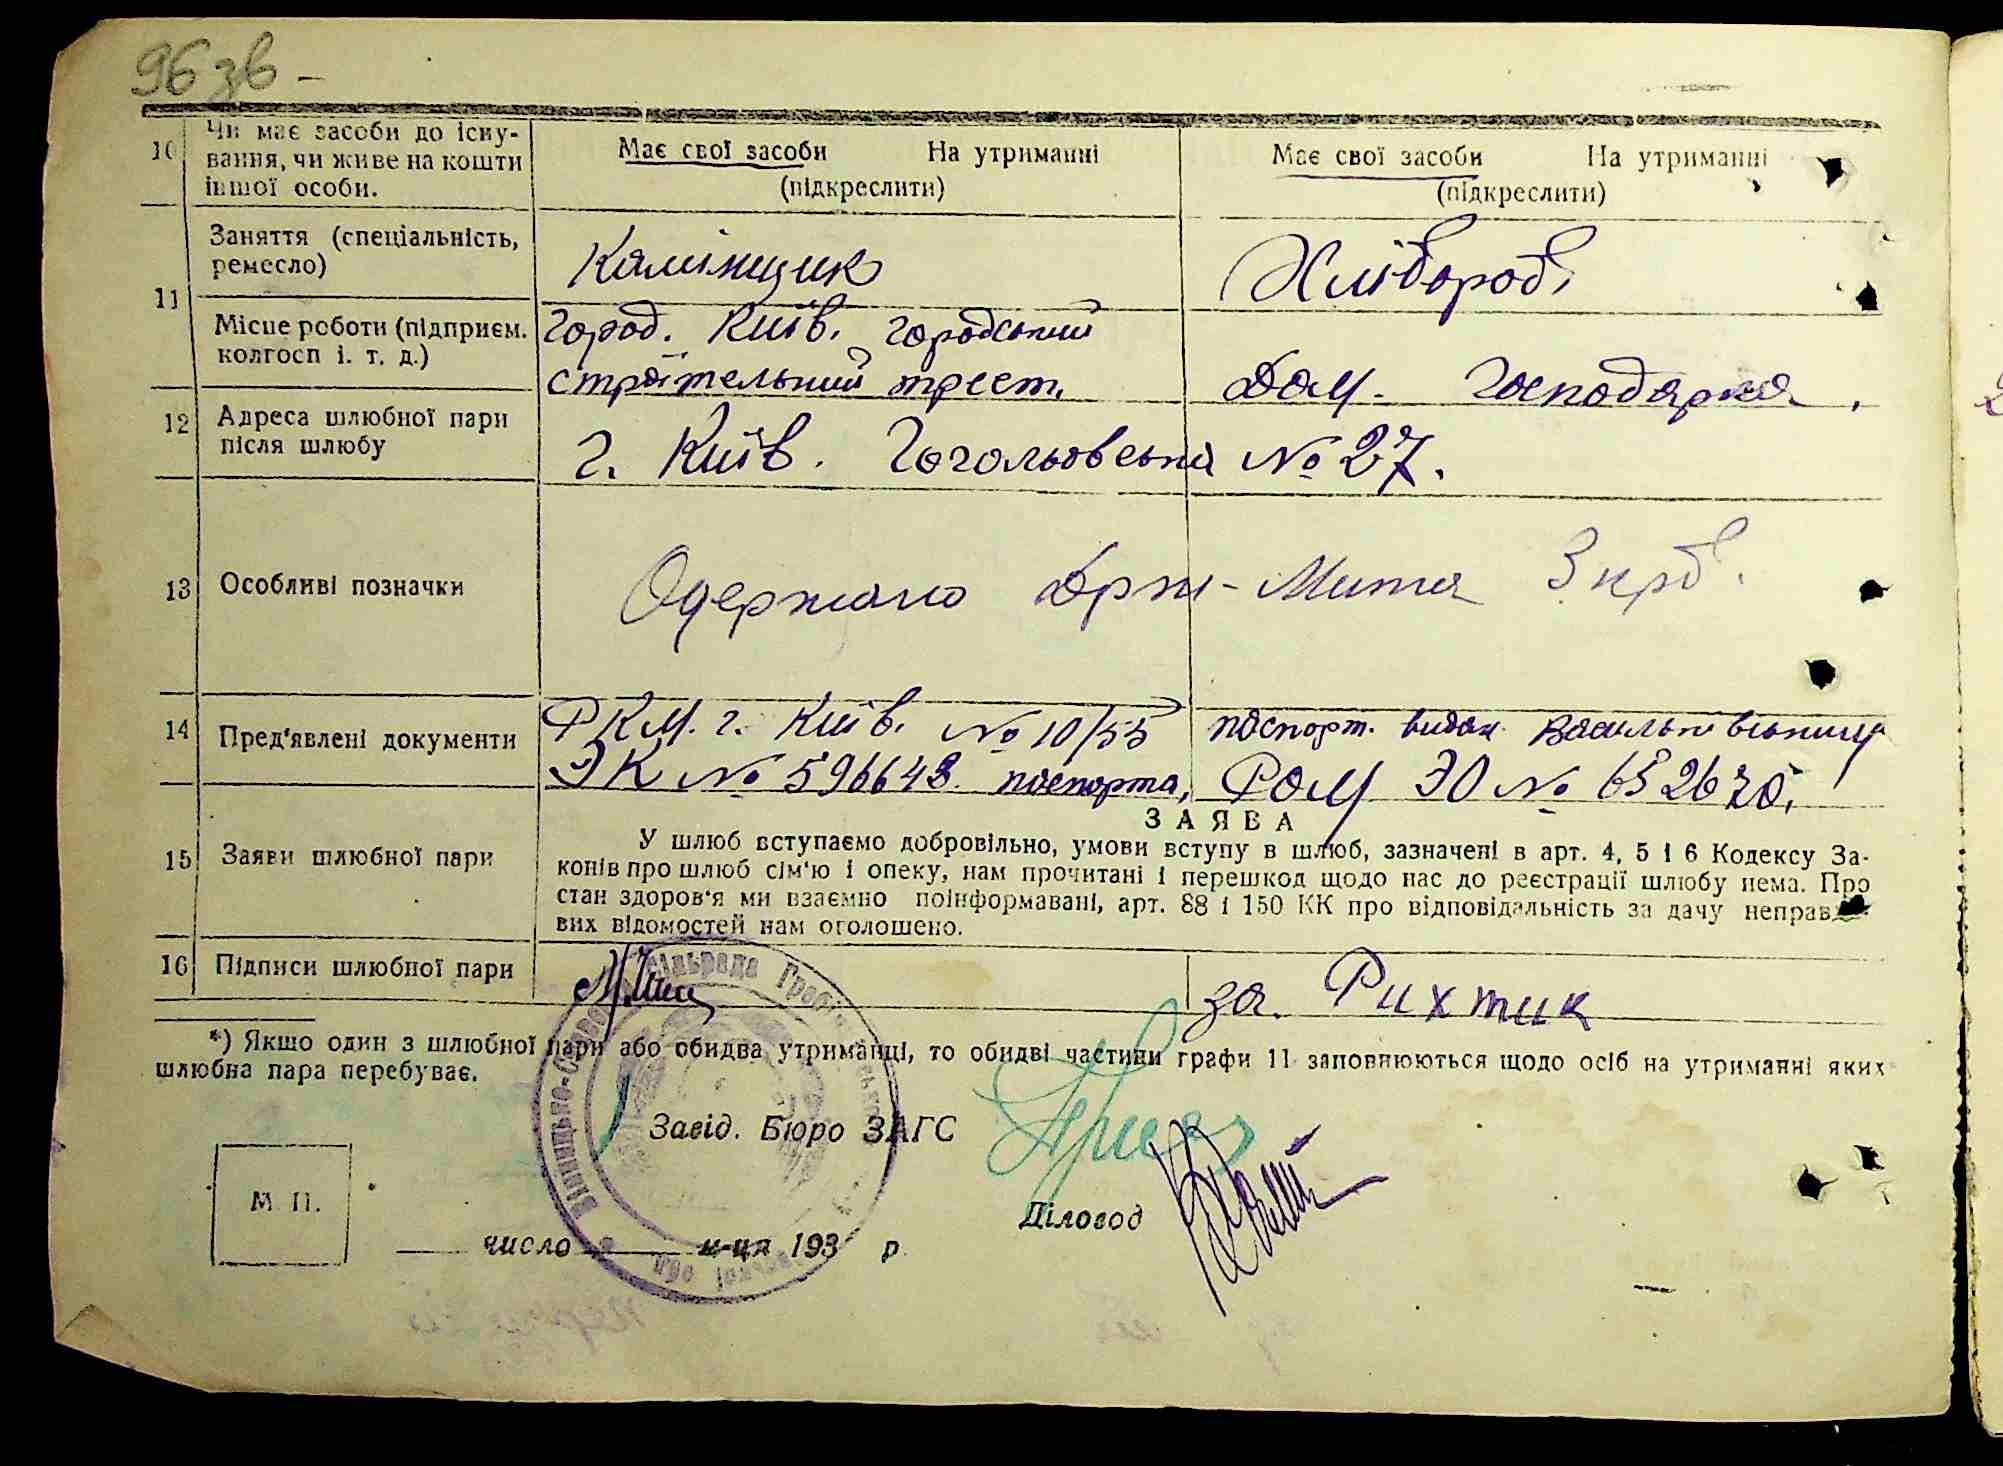 96 зв -
10 Чи має засоби до існу-
вання, чи живе на кошти
іншої особи.
Має свої засоби На утриманні
(підкреслити)
Має свої засоби На утриманні
(підкреслити)
11 Заняття (спеціальність,
ремесло)
Камінщик
Хлібороб,
Місце роботи (підприєм.
колгосп і. т. д.)
город. Київ. городський
строїтельний трест,
Дом. Господарка.
12 Адреса шлюбної пари
після шлюбу
г. Київ. Гогольовська № 27.
13 Особливі позначки
Одержано Држ-Мита 3 крб.
14 Пред'явлені документи
РКМ. г. Київ. № 10/55
ЭК № 596648. паспорта,
паспорт. видан
РОМ ЭО № 652670,
15 Заяви шлюбної пари
ЗАЯВА
У шлюб вступаємо добровільно, умови вступу в шлюб, зазначені в арт. 4, 5 і 6 Кодексу За-
конів про шлюб сім'ю і опеку, нам прочитані і перешкод щодо нас до реєстрації шлюбу нема. Про
стан здоров'я ми взаємно поінформавані, арт. 88 і 150 КК про відповідальність за дачу неправ
вих відомостей нам оголошено.
16 Підписи шлюбної пари
за. Рихтик
*) Якщо один з шлюбної пари або обидва утриманці, то обидві частини графи 11 заповнюються щодо осіб на утриманні яких
шлюбна пара перебуває.
Завід. Бюро ЗАГС
М. П.
Діловод
число м-ця 193 р.